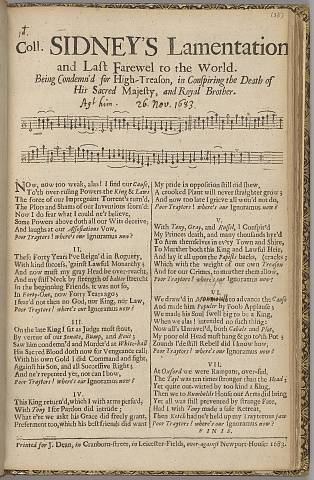 (38)
Coll. SIDNEY'S Lamentation
and Last Farewel to the World.
Being Condemn'd for High-Treason, in Conspiring the Death of
His Sacred Majesty, and Royal Brother.
Agt him. 26. Nov. 1683.
NOw, now too weak, alas! I find our Cause,
To th over-ruling Powers the King & Laws
The force of our Impregnant Torrent's turn'd,
The Plots and Shams of our Inventions scorn'd:
Now I do fear what I could ne'r believe,
Some Powers above doth all our Wits deceive,
And laughs at our Associations Vow,
Poor Traytors! where's our Ignoramus now?
II.
These Forty Years I've Reign'd in Roguery,
With kind success, 'gainst Lawful Monarchy;
And now must my gray Head be over-reacht,
And my stiff Neck by strength of halter stretcht
In the beginning Friends, it was not so,
In Forty-One, now Forty Years ago;
I fear'd not then God, nor King, nor Law,
Poor Traytors! where's our Ignoramus now?
III.
On the late King I sat as Judge most stout,
By vertue of our Senate, Rump, and Rout;
Saw him condemn'd and Murder'd at White-hall
His Sacred Blood doth now for Vengeance call;
With his own Gold I did Command and fight,
Against his Son, and all Successive Right;
And ne'r repented yet, nor can I bow,
Poor Traytors! where's our Ignoramus now?
IV.
This King return'd, which I with arms persu'd,
With Tony I for Pardon did intrude;
What e're we askt his Grace did freely grant,
Preferment too, which his best friends did want
My pride in opposition still did shew,
A crooked Plant will never straighter grow;
And now too late I grieve all wou'd not do,
Poor Traytors! where's our Ignoramus now?
V.
With Tony, Gray, and Russel, I Conspir'd
My Princes death, and many thousands hyr'd
To Arm themselves in ev'ry Town and Shire,
To Murther both this King and Lawful Heir,
And lay it all upon the Papists backs, (cracks;
Which with the weight of our own Treason
And for our Crimes, to murther them allow,
Poor Traytors! where's our Ignoramus now?
VI.
We draw'd in to advance the Cause
And made him Popular by Fools Applause;
We made his Soul swell big to be a King,
When we alas! intended no such thing:
Now all's Unravel'd, both Cabals and Plat,
My poor old Head must hang & go to th Pot;
Zounds I'de still Rebell did I know how,
Poor Traytors! where's our Ignoramus now?
VII.
At Oxford we were Rampant, over-sed,
The Tayl was ten times stronger than the Head;
Yet quite out-witted by too kind a King,
Then we to Rumbolds House our Arms did bring
Yet all was still prevented by strange Fate,
Had I with Tony made a safe Retreat,
Then Ketch had ne'r held up my Traytorous paw
Poor Traytors! where's our Ignoramus now?
FINIS
Printed for J. Dean, in Cranburn-street, in Leicester-Fields, over-against Newport-House: 1683.